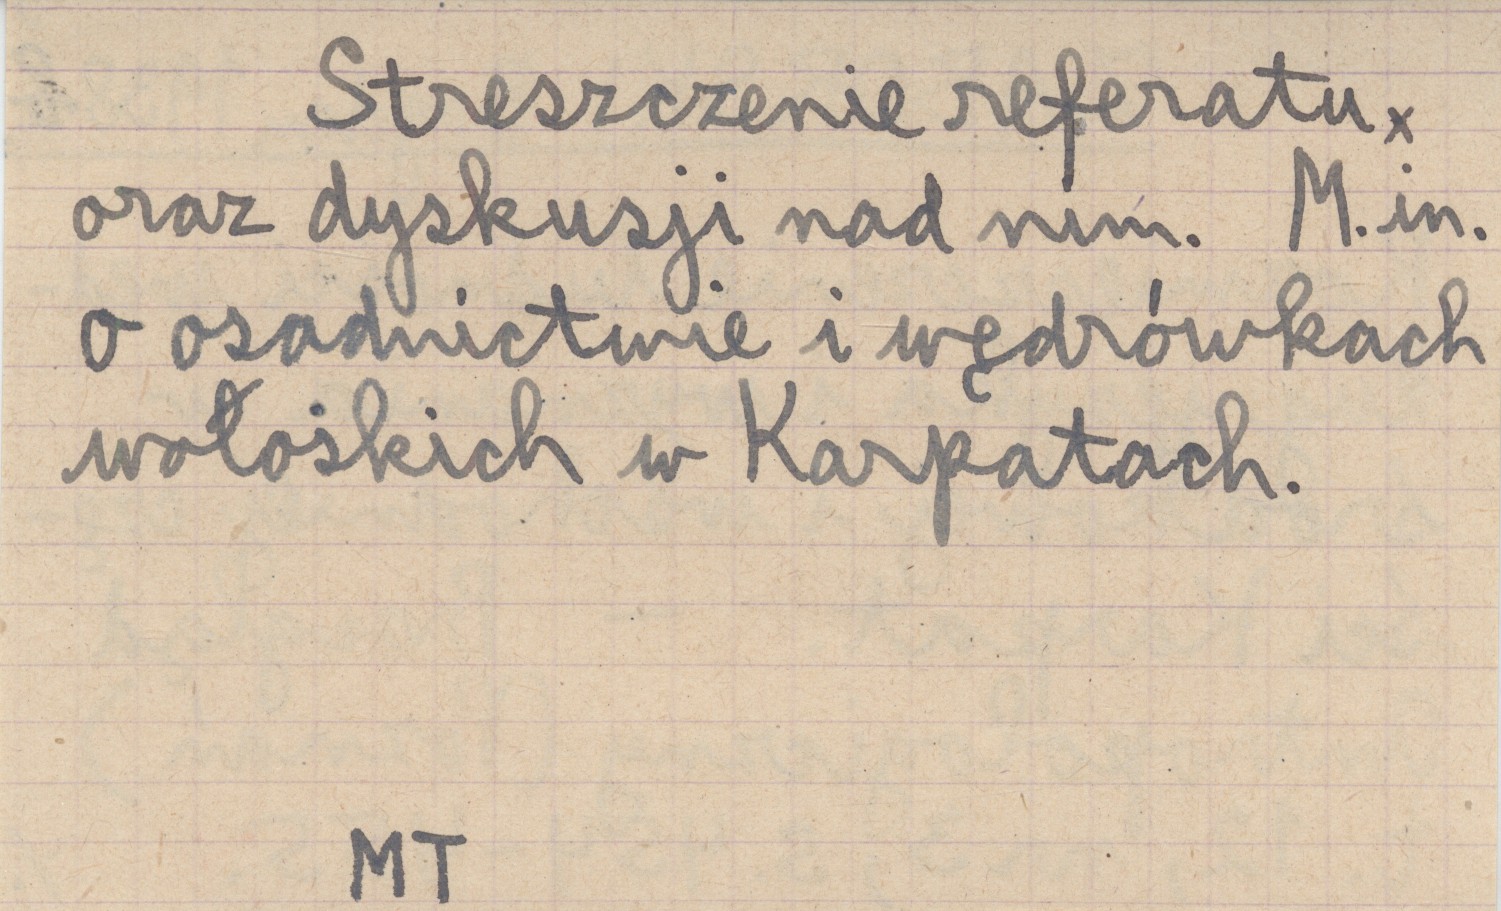 Streszczenie referatu x
oraz dyskusji nad nim. M. in.
o osadnictwie i wędrówkach
wołoskich w Karpatach.
MT